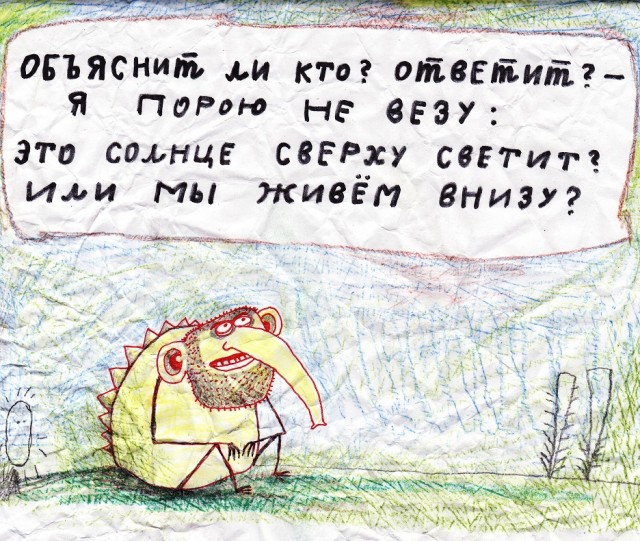 ОБЪЯСНИТ ЛИ КТО? ОТВЕТИТ? –
Я ПОРОЮ НЕ ВЕЗУ:
ЭТО СОЛНЦЕ СВЕРХУ СВЕТИТ?
ИЛИ МЫ ЖИВЁМ ВНИЗУ?